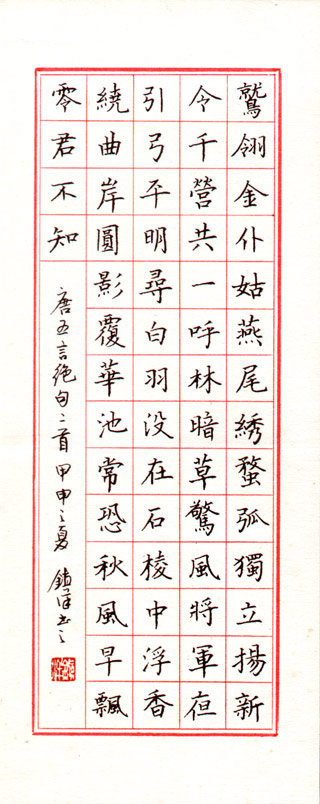 鷲翎金仆姑燕尾綉蝥弧獨立揚新
令千營共一呼林暗草驚風將軍夜
引弓平明尋白羽没在石棱中浮香
繞曲岸圓影覆華池常恐秋風早飄
零君不知
唐五言絶句二首甲申之夏書之